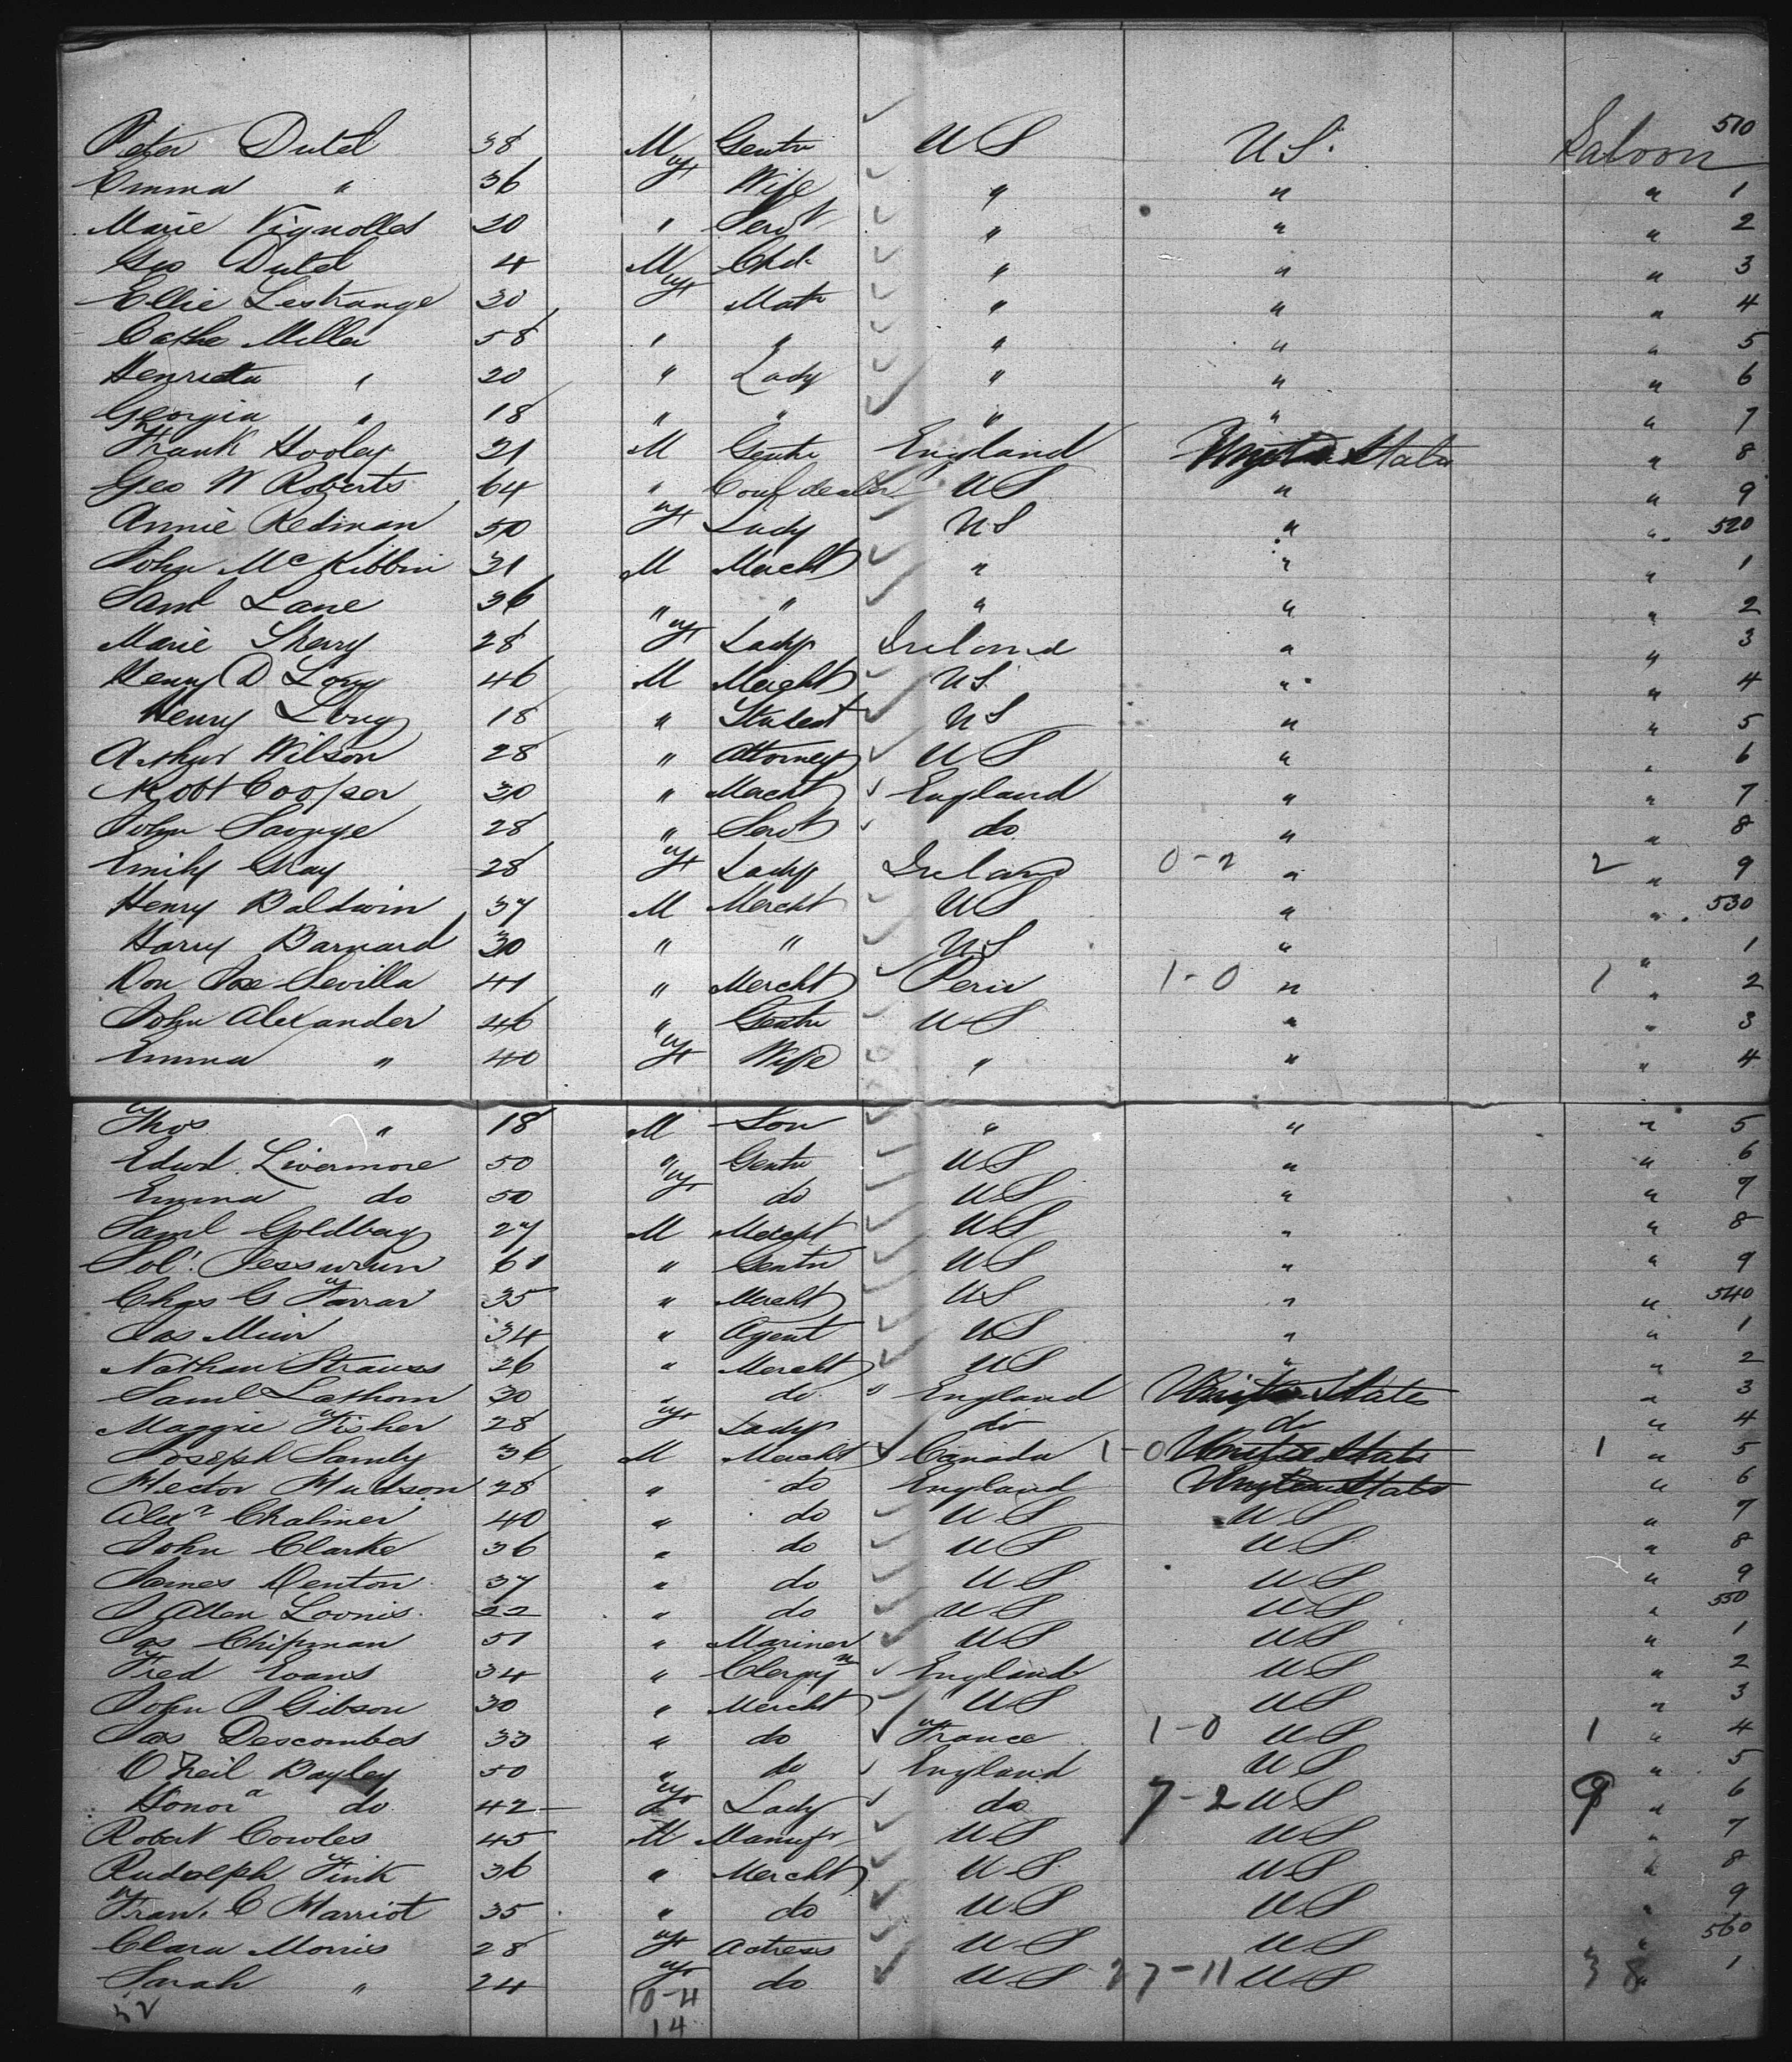 Peter Dutel 38 M Gentn US US. Saloon 510
Emma " 36 F Wife " " " 1
Marie Vignolles 20 " Servt " " " 2
Geo Dutel 4 M Chd " " " 3
Ellie Lestrange 30 F Matn " " " 4
Cathe Miller 58 " " " " " 5
Henrietta " 20 " Lady " " " 6
Georgia " 18 " " " " " 7
Frank Hooley 21 M Gentn England United States " 8
Geo W Roberts 64 " dealer US " " 9
Annie Redman 50 F Lady US " " 520
John McKibbin 31 M Mercht " " " 1
Saml Lane 36 " " " " " 2
Marie Sherry 28 F Lady Ireland " " 3
Henry D Long 46 M Mercht US " " 4
Henry Long 18 " Student US " " 5
Arthur Wilson 28 " Attorney US " " 6
Robt Cooper 30 " Mercht England " " 7
John Savage 28 " Servt do " " 8
Emily Gray 28 F Lady Ireland 0-2 " 2 " 9
Henry Baldwin 37 M Mercht US " " 530
Harry Barnard 30 " " US " " 1
Don Jose Sevilla 41 " Mercht Peru 1-0 " 1 " 2
John Alexander 46 " Gentn US " " 3
Emma " 40 F Wife " " " 4
Thos " 18 M Son " " " 5
Edwd Livermore 50 " Gentn US " " 6
Emma do 50 F do US " " 7
Saml Goldberg 27 M Mercht US " " 8
Sol. Jessurun 61 " Gentn US " " 9
Chas G Farrar 35 " Mercht US " " 540
Jas Muir 34 " Agent US " " 1
Nathan Strauss 26 " Mercht US " " 2
Saml Lathom 30 " do England United States " 3
Maggie Fisher 28 F Lady do do " 4
Joseph Samly 36 M Mercht Canada 1-0 United States 1 " 5
Hector Hudson 28 " do England United States " 6
Alexr Chalmer 40 " do US US " 7
John Clarke 36 " do US US " 8
James Denton 37 " do US US " 9
J Allen Loomis 22 " do US US " 550
Jas Chipman 51 " Mariner US US " 1
Fred Evans 34 " Clergyn England US " 2
John J Gibson 30 " Mercht US US " 3
Jas Descombes 33 " do France 1-0 US 1 " 4
O'Neil Bayley 50 " do England US " 5
Honora do 42 F Lady do 7-2 US 9 " 6
Robert Cowles 45 M Manufr US US " 7
Rudolph Fink 36 " Mercht US US " 8
Fran. C Marriot 35 " do US US " 9
Clara Morris 28 F Actress US US " 560
Sarah " 24 F do US 27-11 US 38 " 1
52 10-4
14